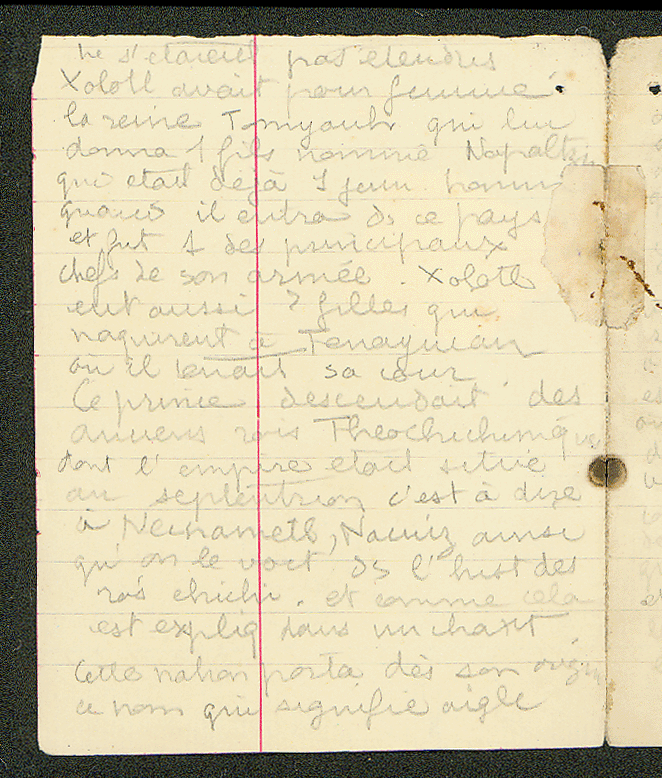 ne s'etaient pas etendus
Xolotl avait pour femme
la reine Tomyauh qui lui
donna 1 fils nommé Nopaltzin
qui etait déjà 1 jeun homm
quand il entra ds ce pays
et fut 1 des principaux
chefs de son armée. Xolotl
eut aussi 2 filles qui
naquirent à Tenayucan
où il tenait sa cour
Ce prince descendait des
anciens rois Theochichimèque
dont l'empire etait situé
au septentrion c'est à dire
à Necnametl, Nacuiz ainsi
qu'on le voit ds l'hist des
rois chichi. et comme cela
est expliq dans un chant
Cette nation porta dès son orig
ce nom qui signifie aigle